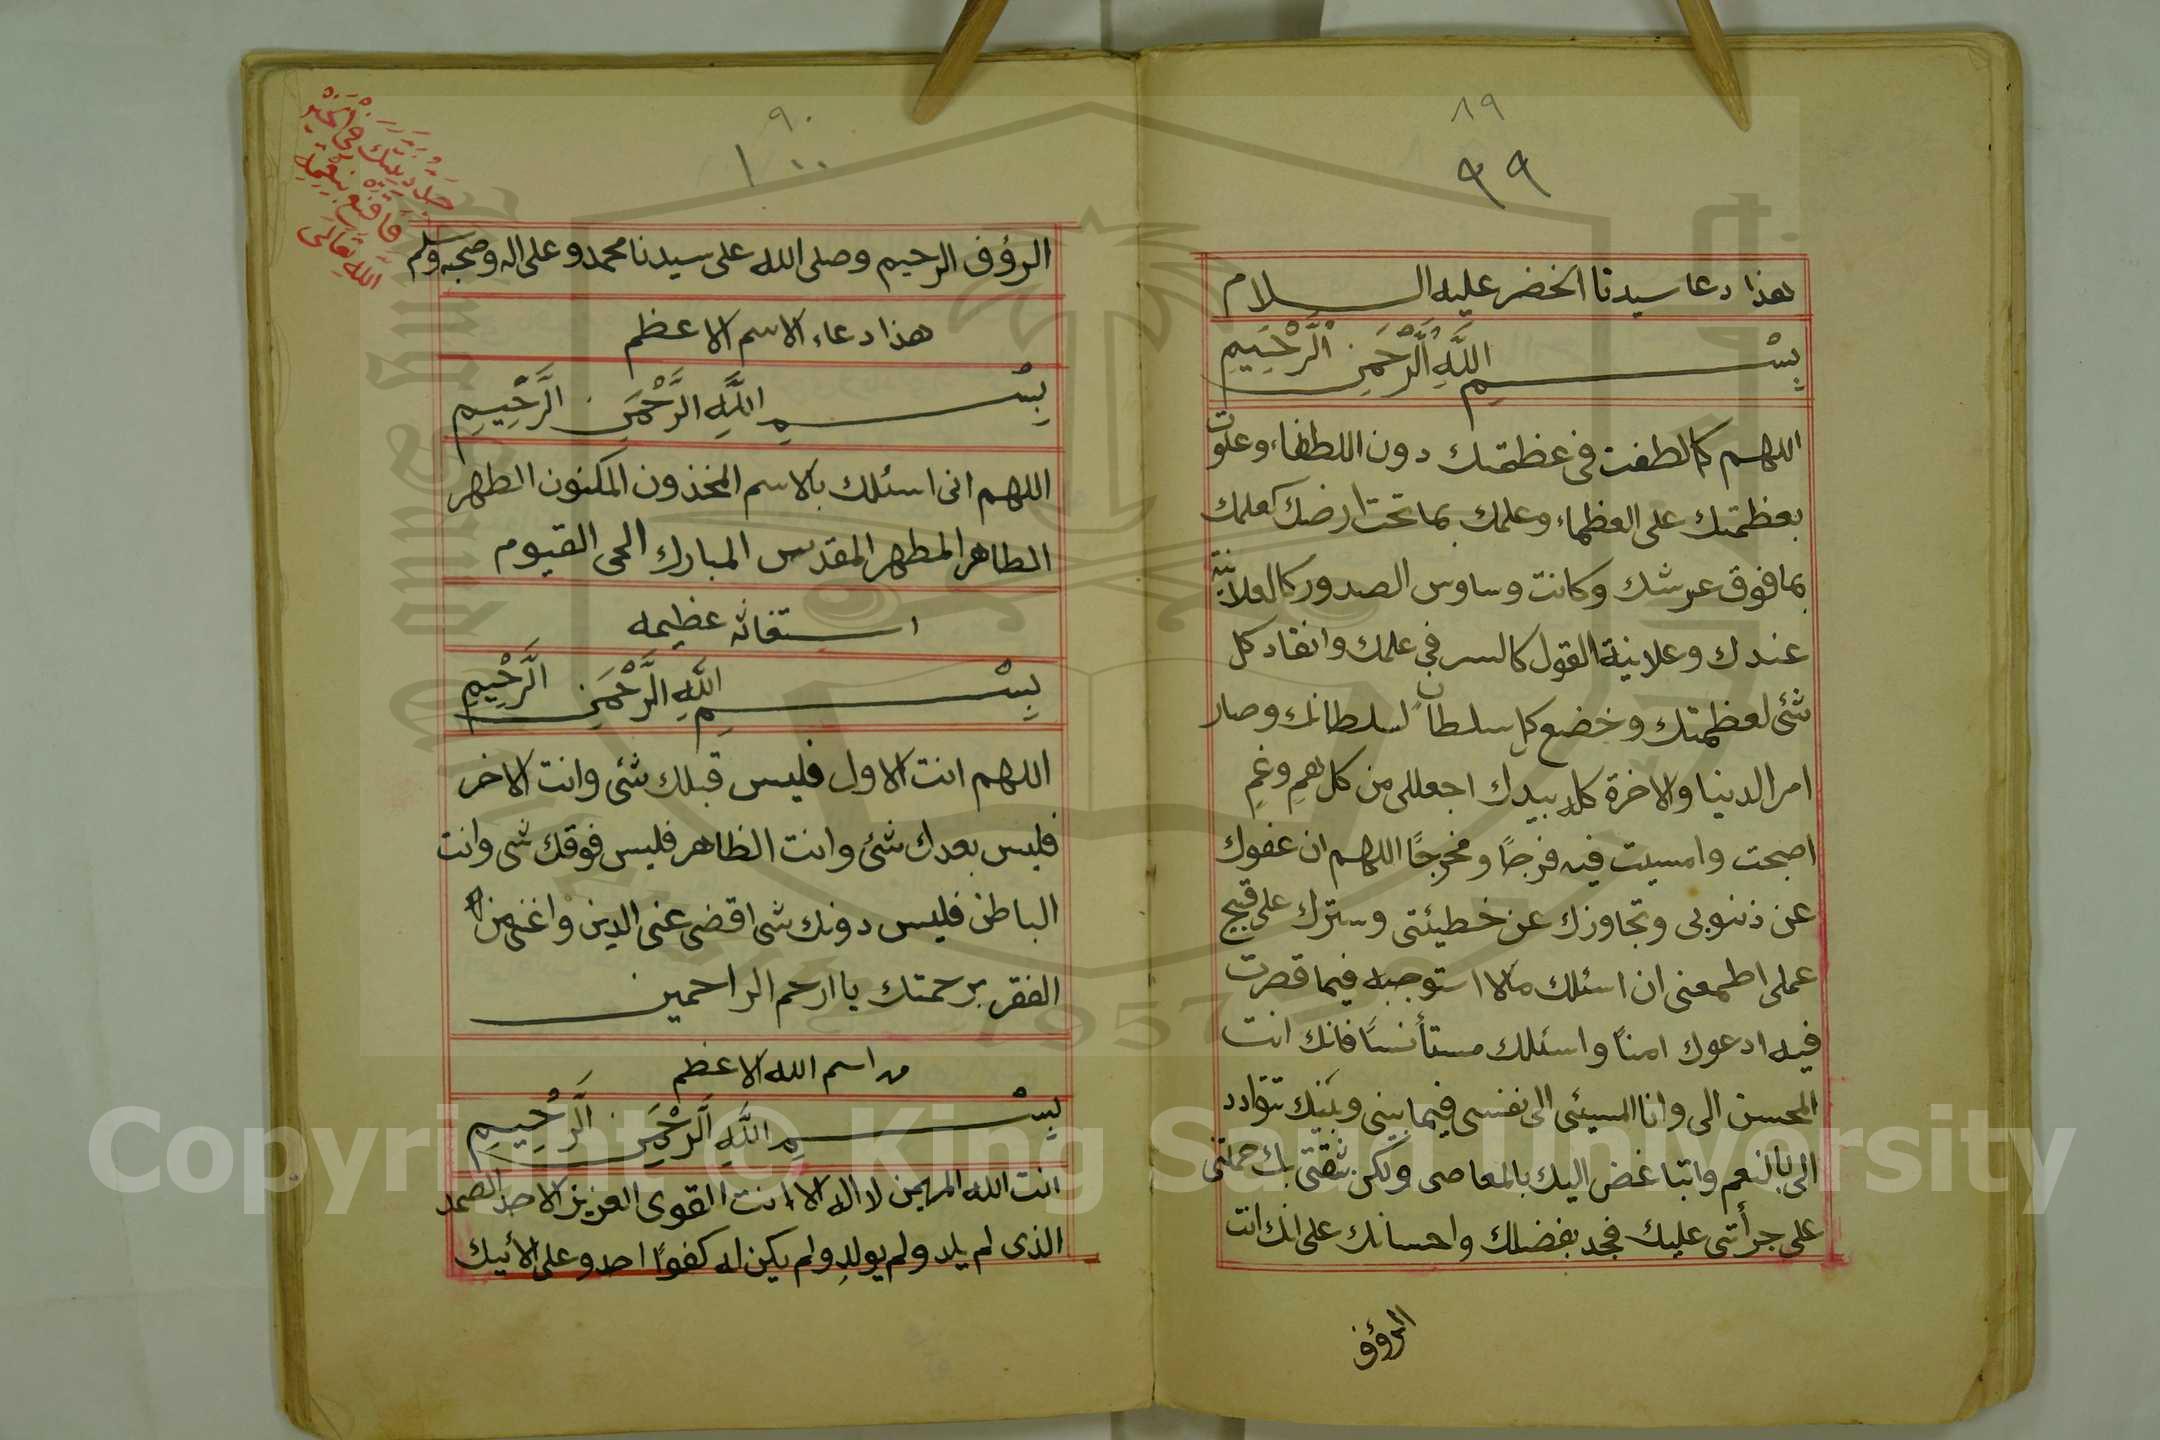 ٨٩
٩٩
هذا دعا سيدنا الخضر عليه السلام
بِسْمِ اللَّهِ الرَّحْمَنِ الرَّحِيمِ
اللهم كما لطفت فى عظمتك دون اللطفاء وعلوت
بعظمتك على العظماء وعلمك بما تحت ارضك كعلمك
بما فوق عرشك وكانت وساوس الصدور كالعلانية
عندك وعلانية القول كالسر فى علمك وانقاد كل
شئ لعظمتك وخضع كل سلطان لسلطانك وصار
امر الدنيا والاخرة كله بيدك اجعل لى من كل همٍ وغمٍ
اصبحت وامسيت فيه فرجًا ومخرجًا اللهم ان عفوك
عن ذنوبى وتجاوزك عن خطيئتى وسترك على قبيح
عملى اطمعنى ان اسئلك مالا استوجبه فيما قصرت
فيه ادعوك امنًا واسئلك مستأنسًا فانك انت
المحسن الى وانا المسيئى الى نفسى فيما بينى وبينك تتوادد
الى بالنعم واتباغض اليك بالمعاصى ولكن ثقتى بك حملتنى
على جرأتى عليك فجد بفضلك واحسانك على انك انت
الرؤف
٩٠
١٠٠
جل ربك
فاقنع بنعمة
الله تعالى
الرؤف الرحيم وصلى الله على سيدنا محمد وعلى اله وصحبه وسلم
هذا دعاء الاسم الاعظم
بِسْمِ اللَّهِ الرَّحْمَنِ الرَّحِيمِ
اللهم انى اسئلك بالاسم المخذون المكنون الطهر
الطاهر المطهر المقدس المبارك الحى القيوم
استغاثه عظيمه
بِسْمِ اللَّهِ الرَّحْمَنِ الرَّحِيمِ
اللهم انت الاول فليس قبلك شئ وانت الاخر
فليس بعدك شئ وانت الظاهر فليس فوقك شى وانت
الباطن فليس دونك شى اقضى عنى الدين واغنى من
الفقر برحمتك يا ارحم الراحمين
اسم الله الاعظم
بِسْمِ اللَّهِ الرَّحْمَنِ الرَّحِيمِ
انت الله المهيمن لا اله الا انت القوى العزيز الاحد الصمد
الذى لم يلد ولم يولد ولم يكن له كفوًا احد وعلى
Copyright © King Saud University
1957